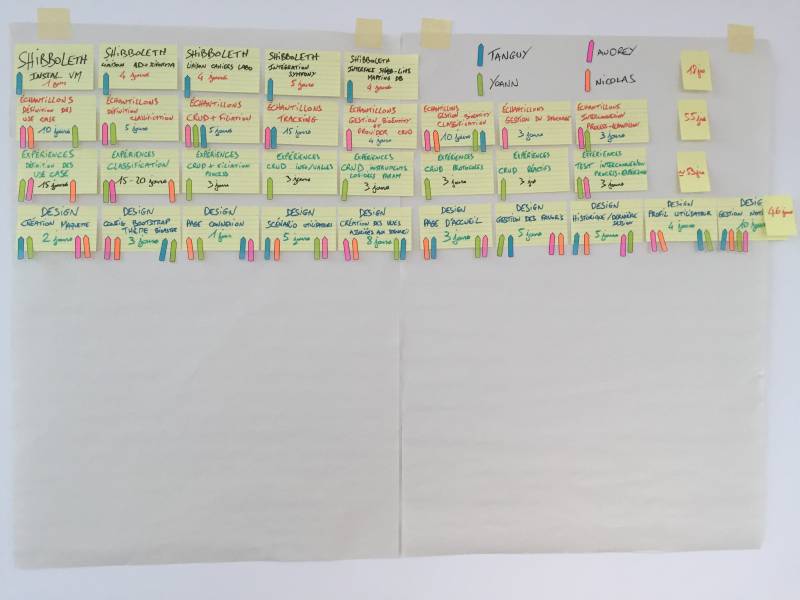 SHIBBOLETH
INSTAL VM
1 jour
SHIBBOLETH
4 jours
SHIBBOLETH
LIAISON CAHIERS LABO
4 jours
SHIBBOLETH
INTÉGRATION
SYMFONY
5 jours
SHIBBOLETH
INTERFACE SHIBB-LIMS
MAPPING DB
4 jours
TANGUY
AUDREY
YOANN
NICOLAS
18 jrs
ÉCHANTILLONS
DÉFINITION DES
USE CASE
10 jours
ÉCHANTILLONS
DÉFINITION
CLASSIFICATION
5 jours
ÉCHANTILLONS
CRUD + FILIATION
5 jours
ÉCHANTILLONS
TRACKING
15 jours
ÉCHANTILLONS
GESTION IDENTITY
PROVIDER CRUD
4 jours
ÉCHANTILLONS
GESTION IDENTITY
CLASSIFICATION
10 jours
ÉCHANTILLONS
GESTION DU STOCKAGE
3 jours
ÉCHANTILLONS
INTERCONNEXION
3 jours
55 jrs
EXPÉRIENCES
DÉFINITION DES
USE CASE
15 jours
EXPÉRIENCES
CLASSIFICATION
15-20 jours
EXPÉRIENCES
CRUD + FILIATION
PROCESS
3 jours
EXPÉRIENCES
3 jours
EXPÉRIENCES
CRUD INSTRUMENTS
3 jours
EXPÉRIENCES
CRUD PROTOCOLES
3 jours
EXPÉRIENCES
CRUD RÉACTIFS
3 jrs
EXPÉRIENCES
TEST INTERCONNEXION
3 jours
DESIGN
CRÉATION MAQUETTE
2 jours
DESIGN
CONFIG BOOTSTRAP
3 jours
DESIGN
PAGE CONNEXION
1 jour
DESIGN
SCÉNARIO UTILISATEURS
5 jours
DESIGN
CRÉATION DES VUES
8 jours
DESIGN
PAGE D'ACCUEIL
3 jours
DESIGN
GESTION DES FAVORIS
5 jours
DESIGN
HISTORIQUE/DERNIÈRE
5 jours
DESIGN
PROFIL UTILISATEUR
4 jours
GESTION
10 jours
46 jrs